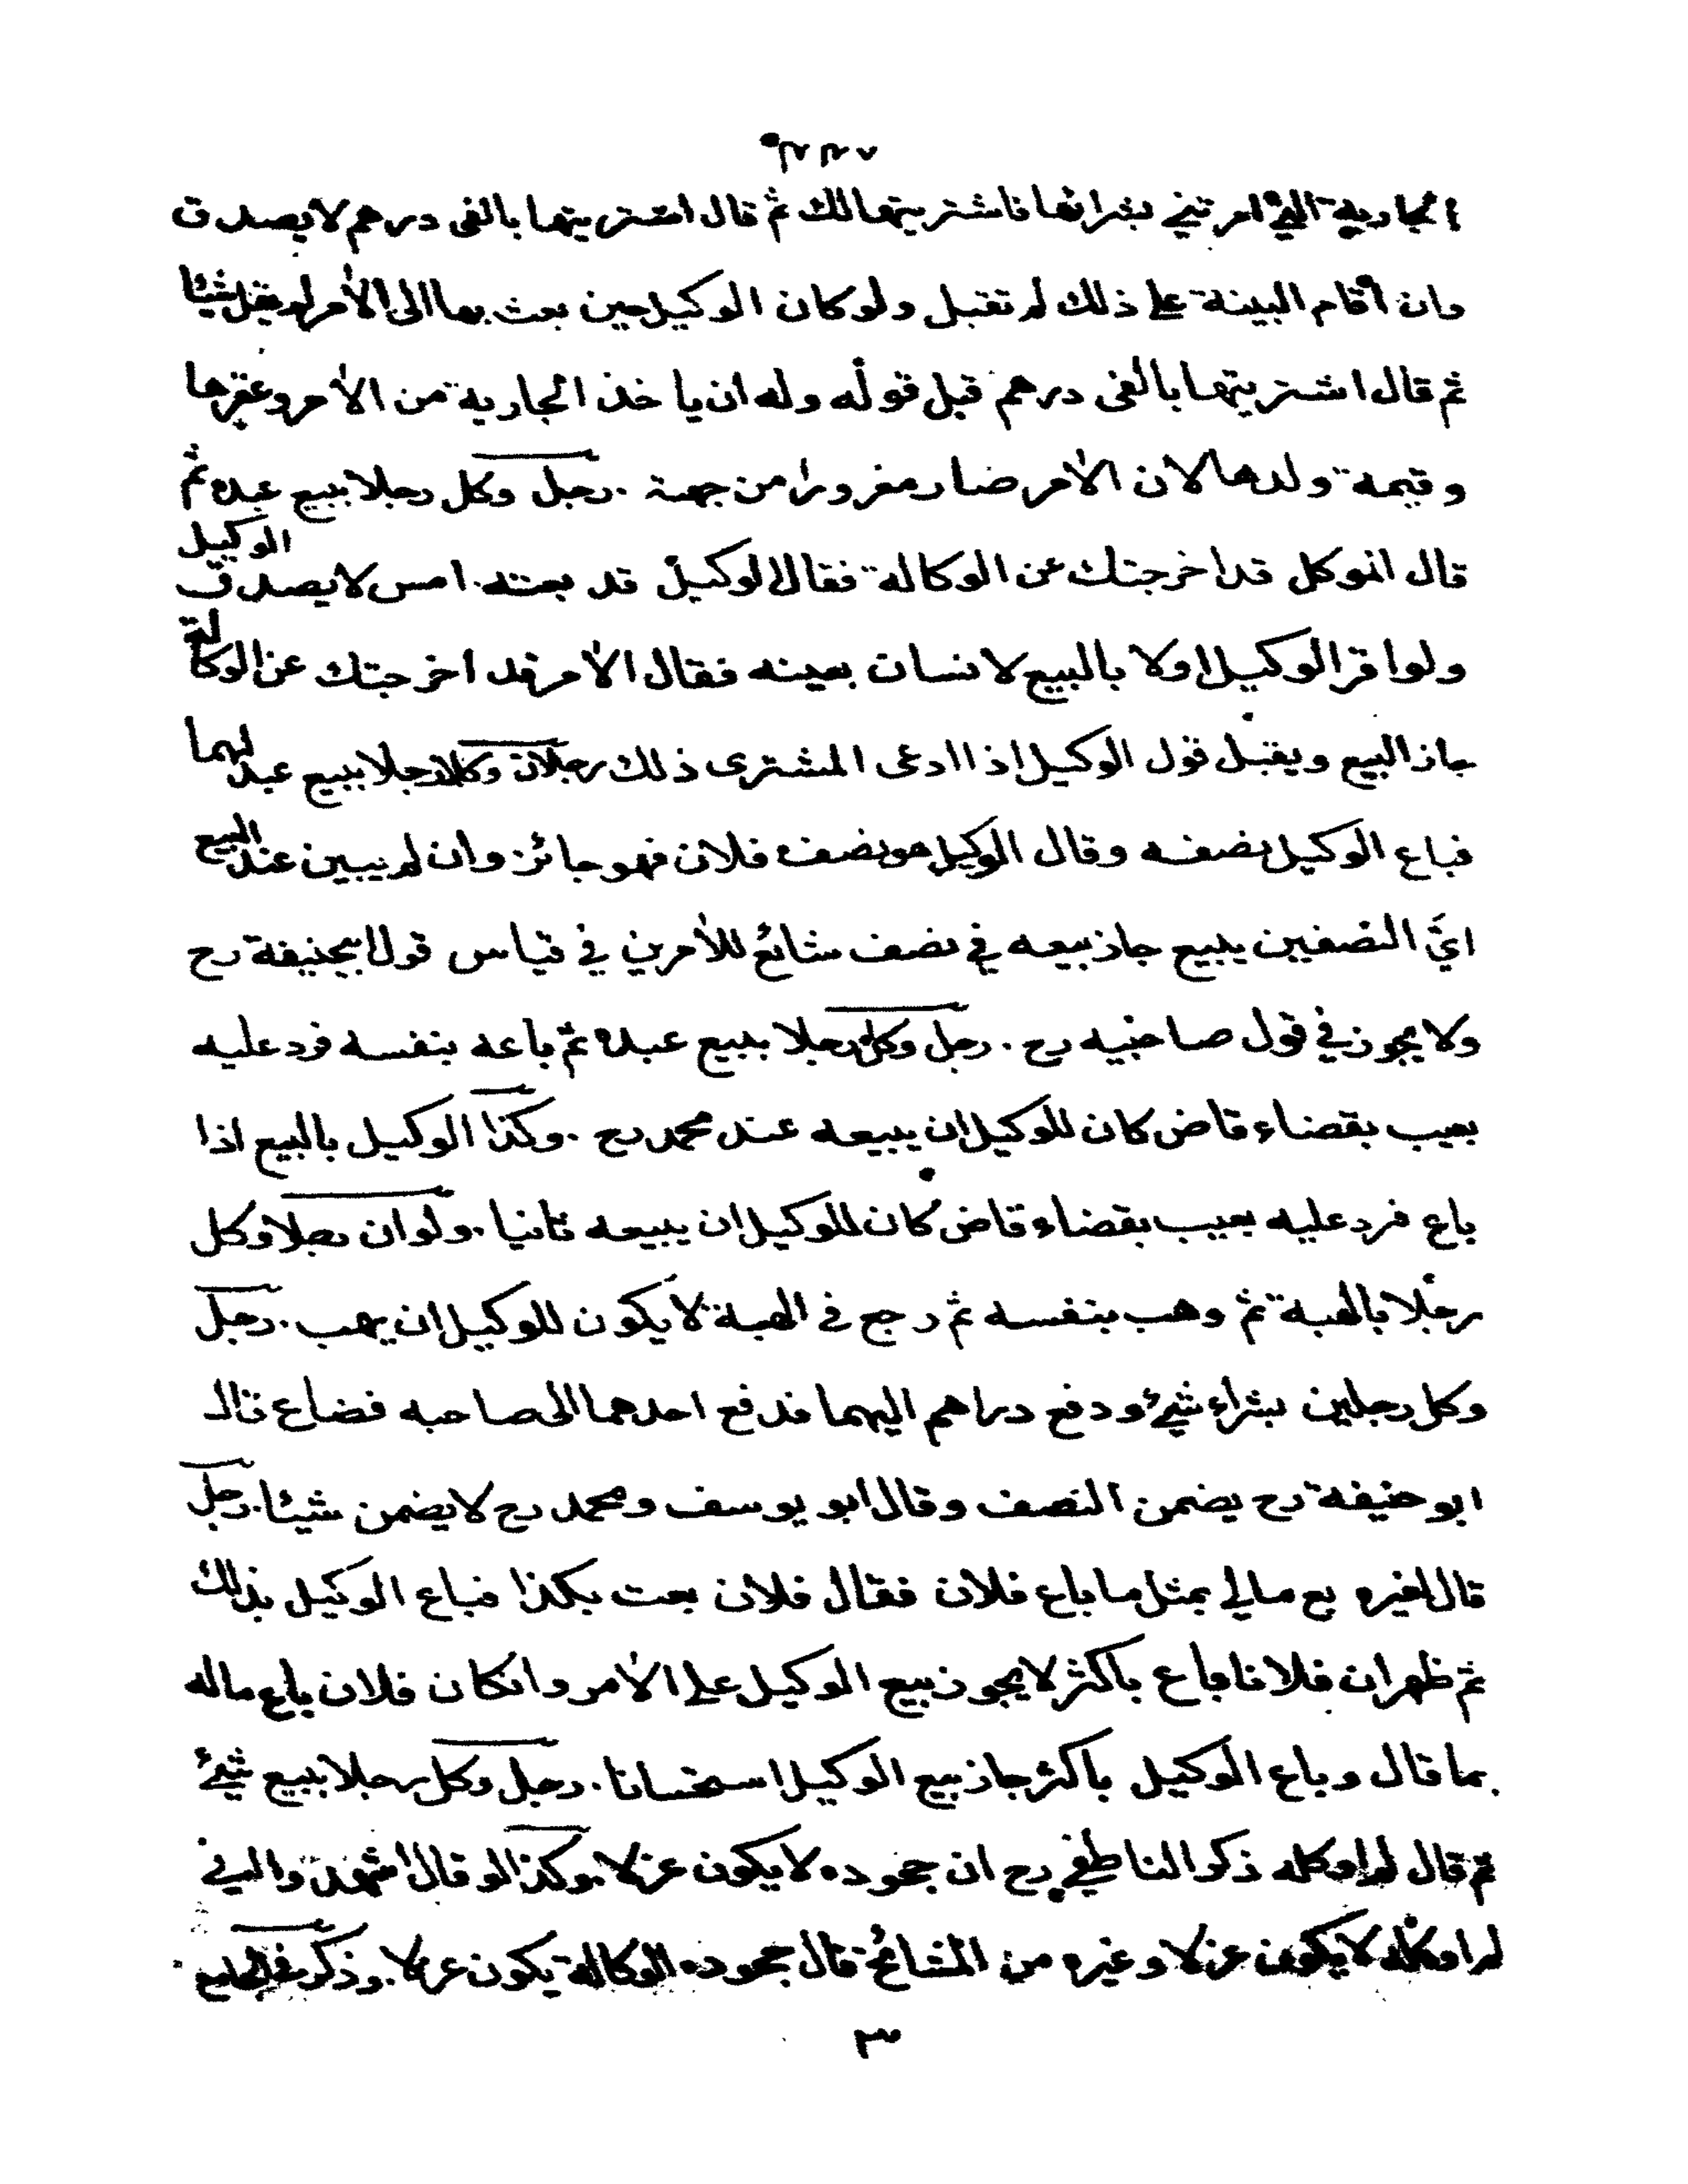 الجارية التي امرتني بشرائها فاشتريتها لك ثم قال اشتريتها بالفى درهم لا يصدق
وان اقام البينة على ذلك لم تقبل ولو كان الوكيل حين بعث بها الى الآمر لم يقل شيئا
ثم قال اشتريتها بالفى درهم قبل قوله وله ان ياخذ الجارية من الآمر وعقرها
وقيمة ولدها لان الآمر صار مغرورا من جهته . رجل وكل رجلا ببيع عبده ثم
قال الموكل قد اخرجتك عن الوكالة فقال الوكيل قد بعته امس لا يصدق الوكيل
ولو اقر الوكيل اولا بالبيع لانسان بعينه فقال الآمر قد اخرجتك عن الوكالة
جاز البيع ويقبل قول الوكيل اذا ادعى المشترى ذلك رجلان وكلا رجلا ببيع عبد لهما
فباع الوكيل نصفه وقال الوكيل هو نصف فلان فهو جائز وان لم يبين عند البيع
ايّ النصفين يبيع جاز بيعه في نصف شائع للآمرين في قياس قول ابيحنيفة رح
ولا يجوز في قول صاحبيه رح . رجل وكل رجلا ببيع عبده ثم باعه بنفسه فرد عليه
بعيب بقضاء قاض كان للوكيل ان يبيعه عند محمد رح . وكذا الوكيل بالبيع اذا
باع فرد عليه بعيب بقضاء قاض كان للوكيل ان يبيعه ثانيا . ولو ان رجلا وكل
رجلا بالهبة ثم وهب بنفسه ثم رجع في الهبة لا يكون للوكيل ان يهب . رجل
وكل رجلين بشراء شيئ ودفع دراهم اليهما فدفع احدهما الى صاحبه فضاع قال
ابو حنيفة رح يضمن النصف وقال ابو يوسف ومحمد رح لا يضمن شيئا . رجل
قال لغيره بع مالي بمثل ما باع فلان فقال فلان بعت بكذا فباع الوكيل بذلك
ثم ظهر ان فلانا باع باكثر لا يجوز بيع الوكيل على الآمر وانكان فلان باع ماله
بما قال وباع الوكيل باكثر جاز بيع الوكيل استحسانا . رجل وكل رجلا ببيع شيئ
ثم قال لم اوكله ذكر الناطفي رح ان جحوده لا يكون عزلا . وكذا لو قال اشهدوا اني
لم اوكله لا يكون عزلا وغيره من المشائخ قال جحوده الوكالة يكون عزلا . وذكر في الجامع
٣